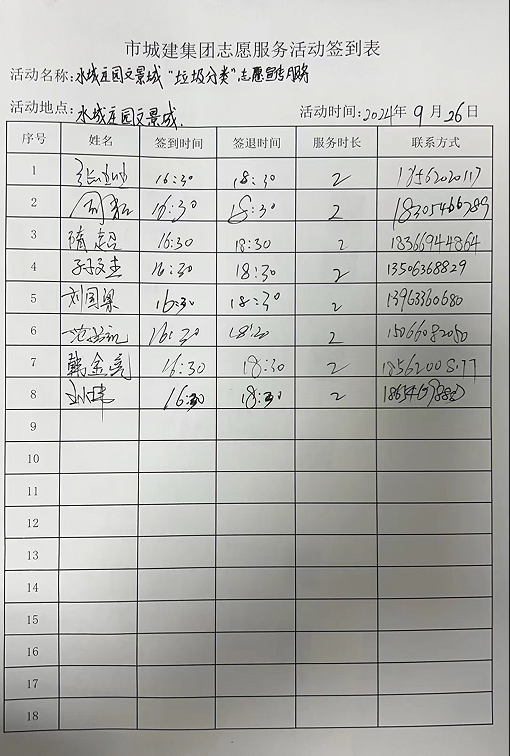 市城建集团志愿服务活动签到表
活动名称:水城庄园文景城“垃圾分类”志愿宣传服务
活动地点:水城庄园文景城. 活动时间:2024年9月26日
序号 姓名 签到时间 签退时间 服务时长 联系方式
1 16:30 18:30 2
2 16:30 18:30 2 18305466789
3 隋 16:30 18:30 2 18366944864
4 孙文杰 16:30 18:30 2 13506368829
5 刘国梁 16:30 18:30 2 13963360680
6 16:30 18:30 2 15066082050
7 韩金亮 16:30 18:30 2
8 刘玮 16:30 18:30 2
9
10
11
12
13
14
15
16
17
18